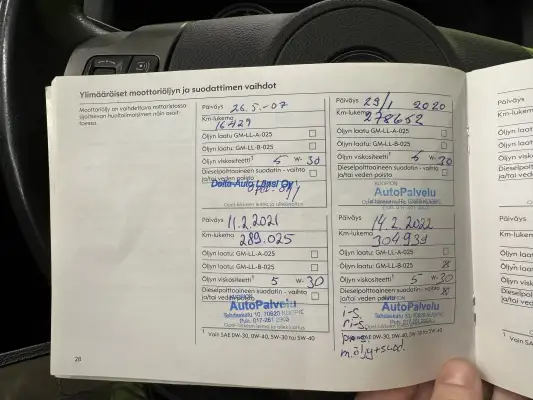 Ylimääräiset moottoriöljyn ja suodattimen vaihdot
Moottoriöljy on vaihdettava mittaristossa
sijaitsevan huoltoilmaisimen näin osoit-
taessa.
Päiväys 26.5.-07
Km-lukema
16429
Öljyn laatu GM-LL-A-025
Öljyn laatu: GM-LL-B-025
Öljyn viskositeetti¹ 5 W-30
Dieselpolttoaineen suodatin - vaihto
ja/tai veden poisto
Delta-Auto Länsi Oy
Opel-liikkeen leima ja allekirjoitus
Päiväys 29/1 2020
Km-lukema
278652
Öljyn laatu GM-LL-A-025
Öljyn laatu: GM-LL-B-025
Öljyn viskositeetti¹ 5 W-30
Dieselpolttoaineen suodatin - vaihto
ja/tai veden poisto
KUOPION
AutoPalvelu
Päiväys 11.2.2021
Km-lukema
289.025
Öljyn laatu: GM-LL-A-025
Öljyn laatu: GM-LL-B-025
Öljyn viskositeetti¹ 5 W-30
Dieselpolttoaineen suodatin - vaihto
ja/tai veden poisto
KUOPION
AutoPalvelu
Tehdaskatu 10, 70620 KUOPIO
Opel-liikkeen leima ja allekirjoitus
Päiväys 14.2.2022
Km-lukema
304939
Öljyn laatu: GM-LL-A-025
Öljyn laatu: GM-LL-B-025
Öljyn viskositeetti¹ 5 W-30
Dieselpolttoaineen suodatin - vaihto
ja/tai veden poisto
KUOPION
AutoPalvelu
i-S,
ri-S,
m.öljy+suod.
¹ Voin SAE 0W-30, 0W-40, 5W-30 tai 5W-40
28
Päiväys
Km-lukema
Öljyn laatu
Öljyn laatu
Öljyn viskos
Dieselpoltto
ja/tai veden
Päiväys
Km-luke
Öljyn laatu
Öljyn laatu
Öljyn visk
Dieselpo
ja/tai ve
¹ Vain